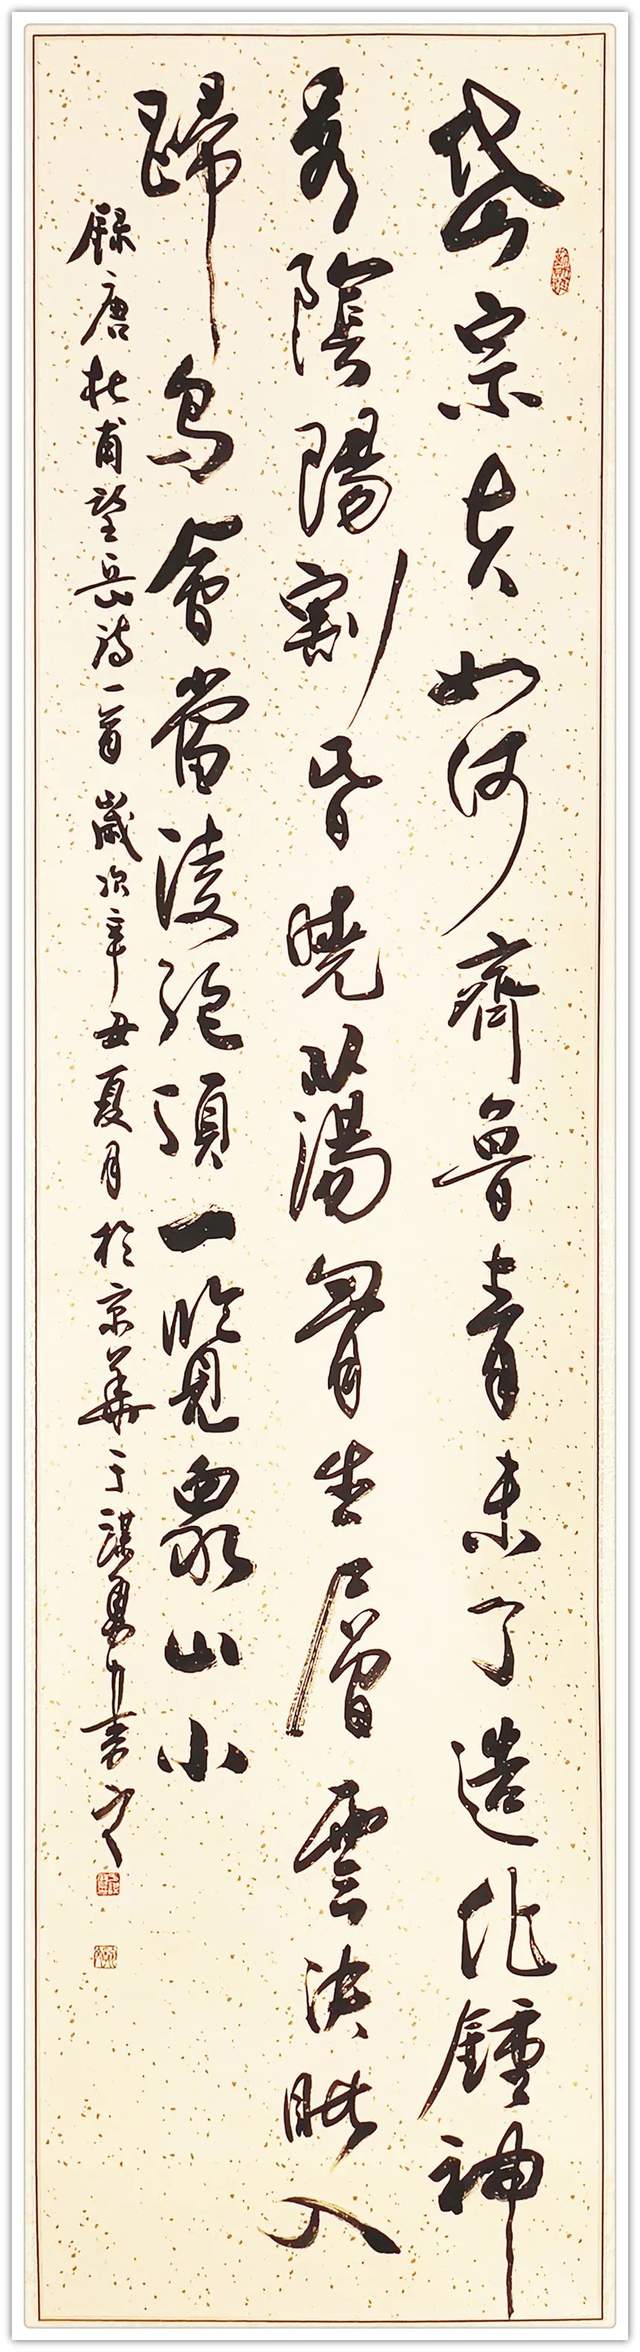 岱宗夫如何齊魯青未了造化鍾神
秀陰陽割昏曉蕩胷生層雲決眦入
歸鳥會當凌絶頂一覽衆山小
録唐杜甫望岳詩一首歲次辛丑夏月於京華于謀勇書